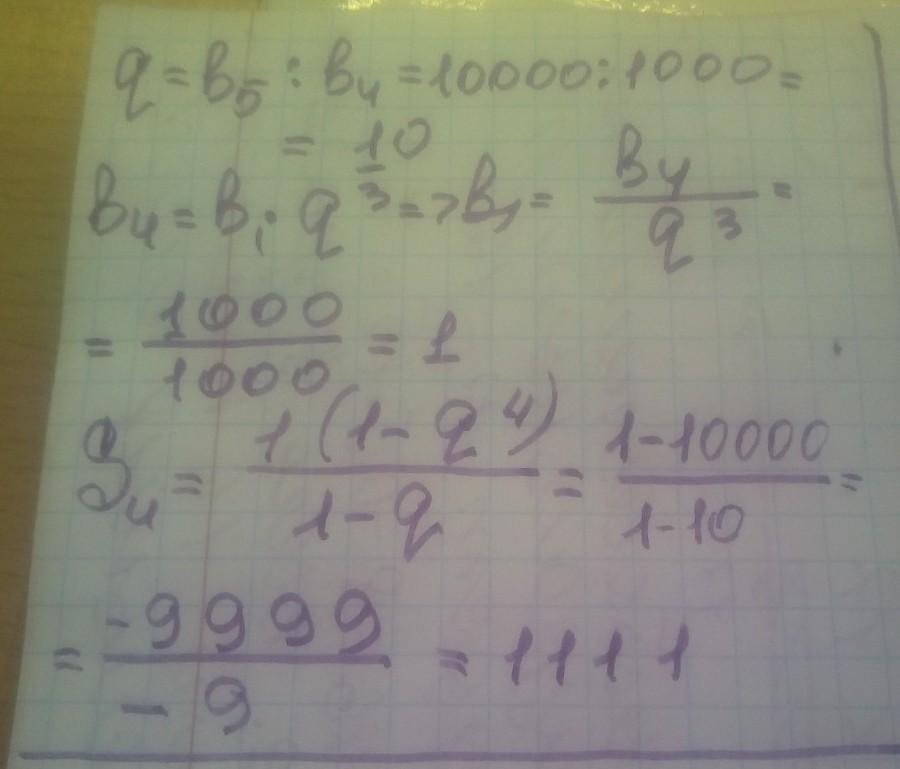 q = b₅ : b₄ = 10000 : 1000 =
= 10
b₄ = b₁ · q³ => b₁ = b₄/q³ =
= 1000/1000 = 1
S₄ = 1(1 - q⁴)/1 - q = 1 - 10000/1 - 10 =
= -9999/-9 = 1111